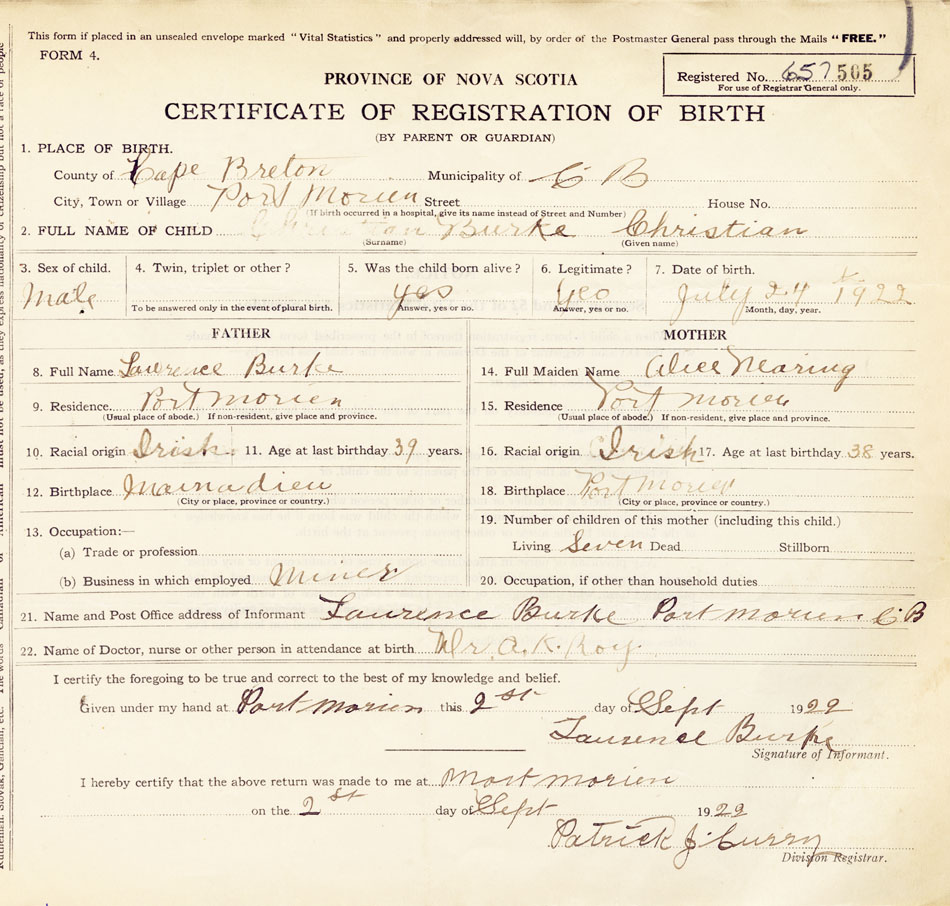 This form if placed in an unsealed envelope marked "Vital Statistics" and properly addressed will, by order of the Postmaster General pass through the Mails "FREE."
FORM 4.
Registered No. 657 505
For use of Registrar General only.
PROVINCE OF NOVA SCOTIA
CERTIFICATE OF REGISTRATION OF BIRTH
(BY PARENT OR GUARDIAN)
1. PLACE OF BIRTH.
County of Cape Breton Municipality of C B
City, Town or Village Port Morien Street House No.
(If birth occurred in a hospital, give its name instead of Street and Number)
2. FULL NAME OF CHILD Burke Christian
(Surname) (Given name)
3. Sex of child. 4. Twin, triplet or other? 5. Was the child born alive? 6. Legitimate? 7. Date of birth.
Male yes yes July 24 1922
To be answered only in the event of plural birth. Answer, yes or no. Answer, yes or no. Month, day, year.
FATHER MOTHER
8. Full Name Lawrence Burke 14. Full Maiden Name Alice Nearing
9. Residence Port Morien 15. Residence Port Morien
(Usual place of abode.) If non-resident, give place and province. (Usual place of abode.) If non-resident, give place and province.
10. Racial origin Irish 11. Age at last birthday 39 years. 16. Racial origin Irish 17. Age at last birthday 38 years.
12. Birthplace Mainadieu 18. Birthplace Port Morien
(City or place, province or country.) (City or place, province or country.)
13. Occupation:— 19. Number of children of this mother (including this child.)
(a) Trade or profession Living Seven Dead Stillborn
(b) Business in which employed Miner 20. Occupation, if other than household duties
21. Name and Post Office address of Informant Laurence Burke Port Morien C B
22. Name of Doctor, nurse or other person in attendance at birth Dr. A. K. Roy.
I certify the foregoing to be true and correct to the best of my knowledge and belief.
Given under my hand at Port Morien this 2st day of Sept 1922
Laurence Burke
Signature of Informant.
I hereby certify that the above return was made to me at Port Morien
on the 2st day of Sept 1922
Patrick J. Curry
Division Registrar.